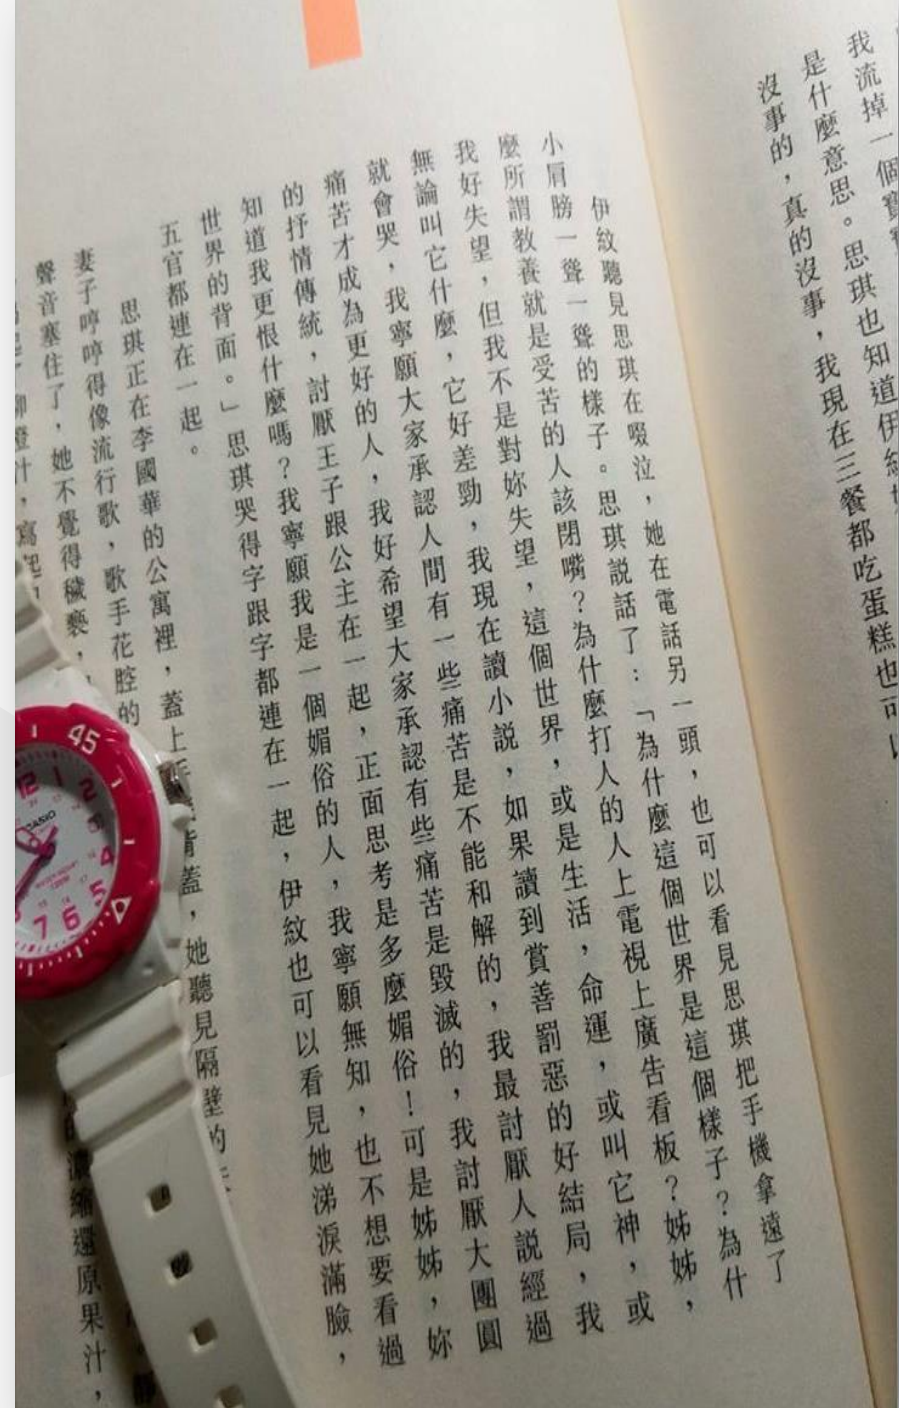 我流掉一個寶寶
是什麼意思。思琪也知道伊紋
沒事的，真的沒事，我現在三餐都吃蛋糕也可以
伊紋聽見思琪在啜泣，她在電話另一頭，也可以看見思琪把手機拿遠了
小肩膀一聳一聳的樣子。思琪說話了：「為什麼這個世界是這個樣子？為什
麼所謂教養就是受苦的人該閉嘴？為什麼打人的人上電視上廣告看板？姊姊，
我好失望，但我不是對妳失望，這個世界，或是生活，命運，或叫它神，或
無論叫它什麼，它好差勁，我現在讀小說，如果讀到賞善罰惡的好結局，我
就會哭，我寧願大家承認人間有一些痛苦是不能和解的，我最討厭人說經過
痛苦才成為更好的人，我好希望大家承認有些痛苦是毀滅的，我討厭大團圓
的抒情傳統，討厭王子跟公主在一起，正面思考是多麼媚俗！可是姊姊，妳
知道我更恨什麼嗎？我寧願我是一個媚俗的人，我寧願無知，也不想要看過
世界的背面。」思琪哭得字跟字都連在一起，伊紋也可以看見她涕淚滿臉，
五官都連在一起。
思琪正在李國華的公寓裡，蓋上手 背蓋，她聽見隔壁的
妻子哼哼得像流行歌，歌手花腔的
聲音塞住了，她不覺得穢褻，
柳橙汁，寫起 濃縮還原果汁，
45
12
1
2
4
5
6
7
CASIO